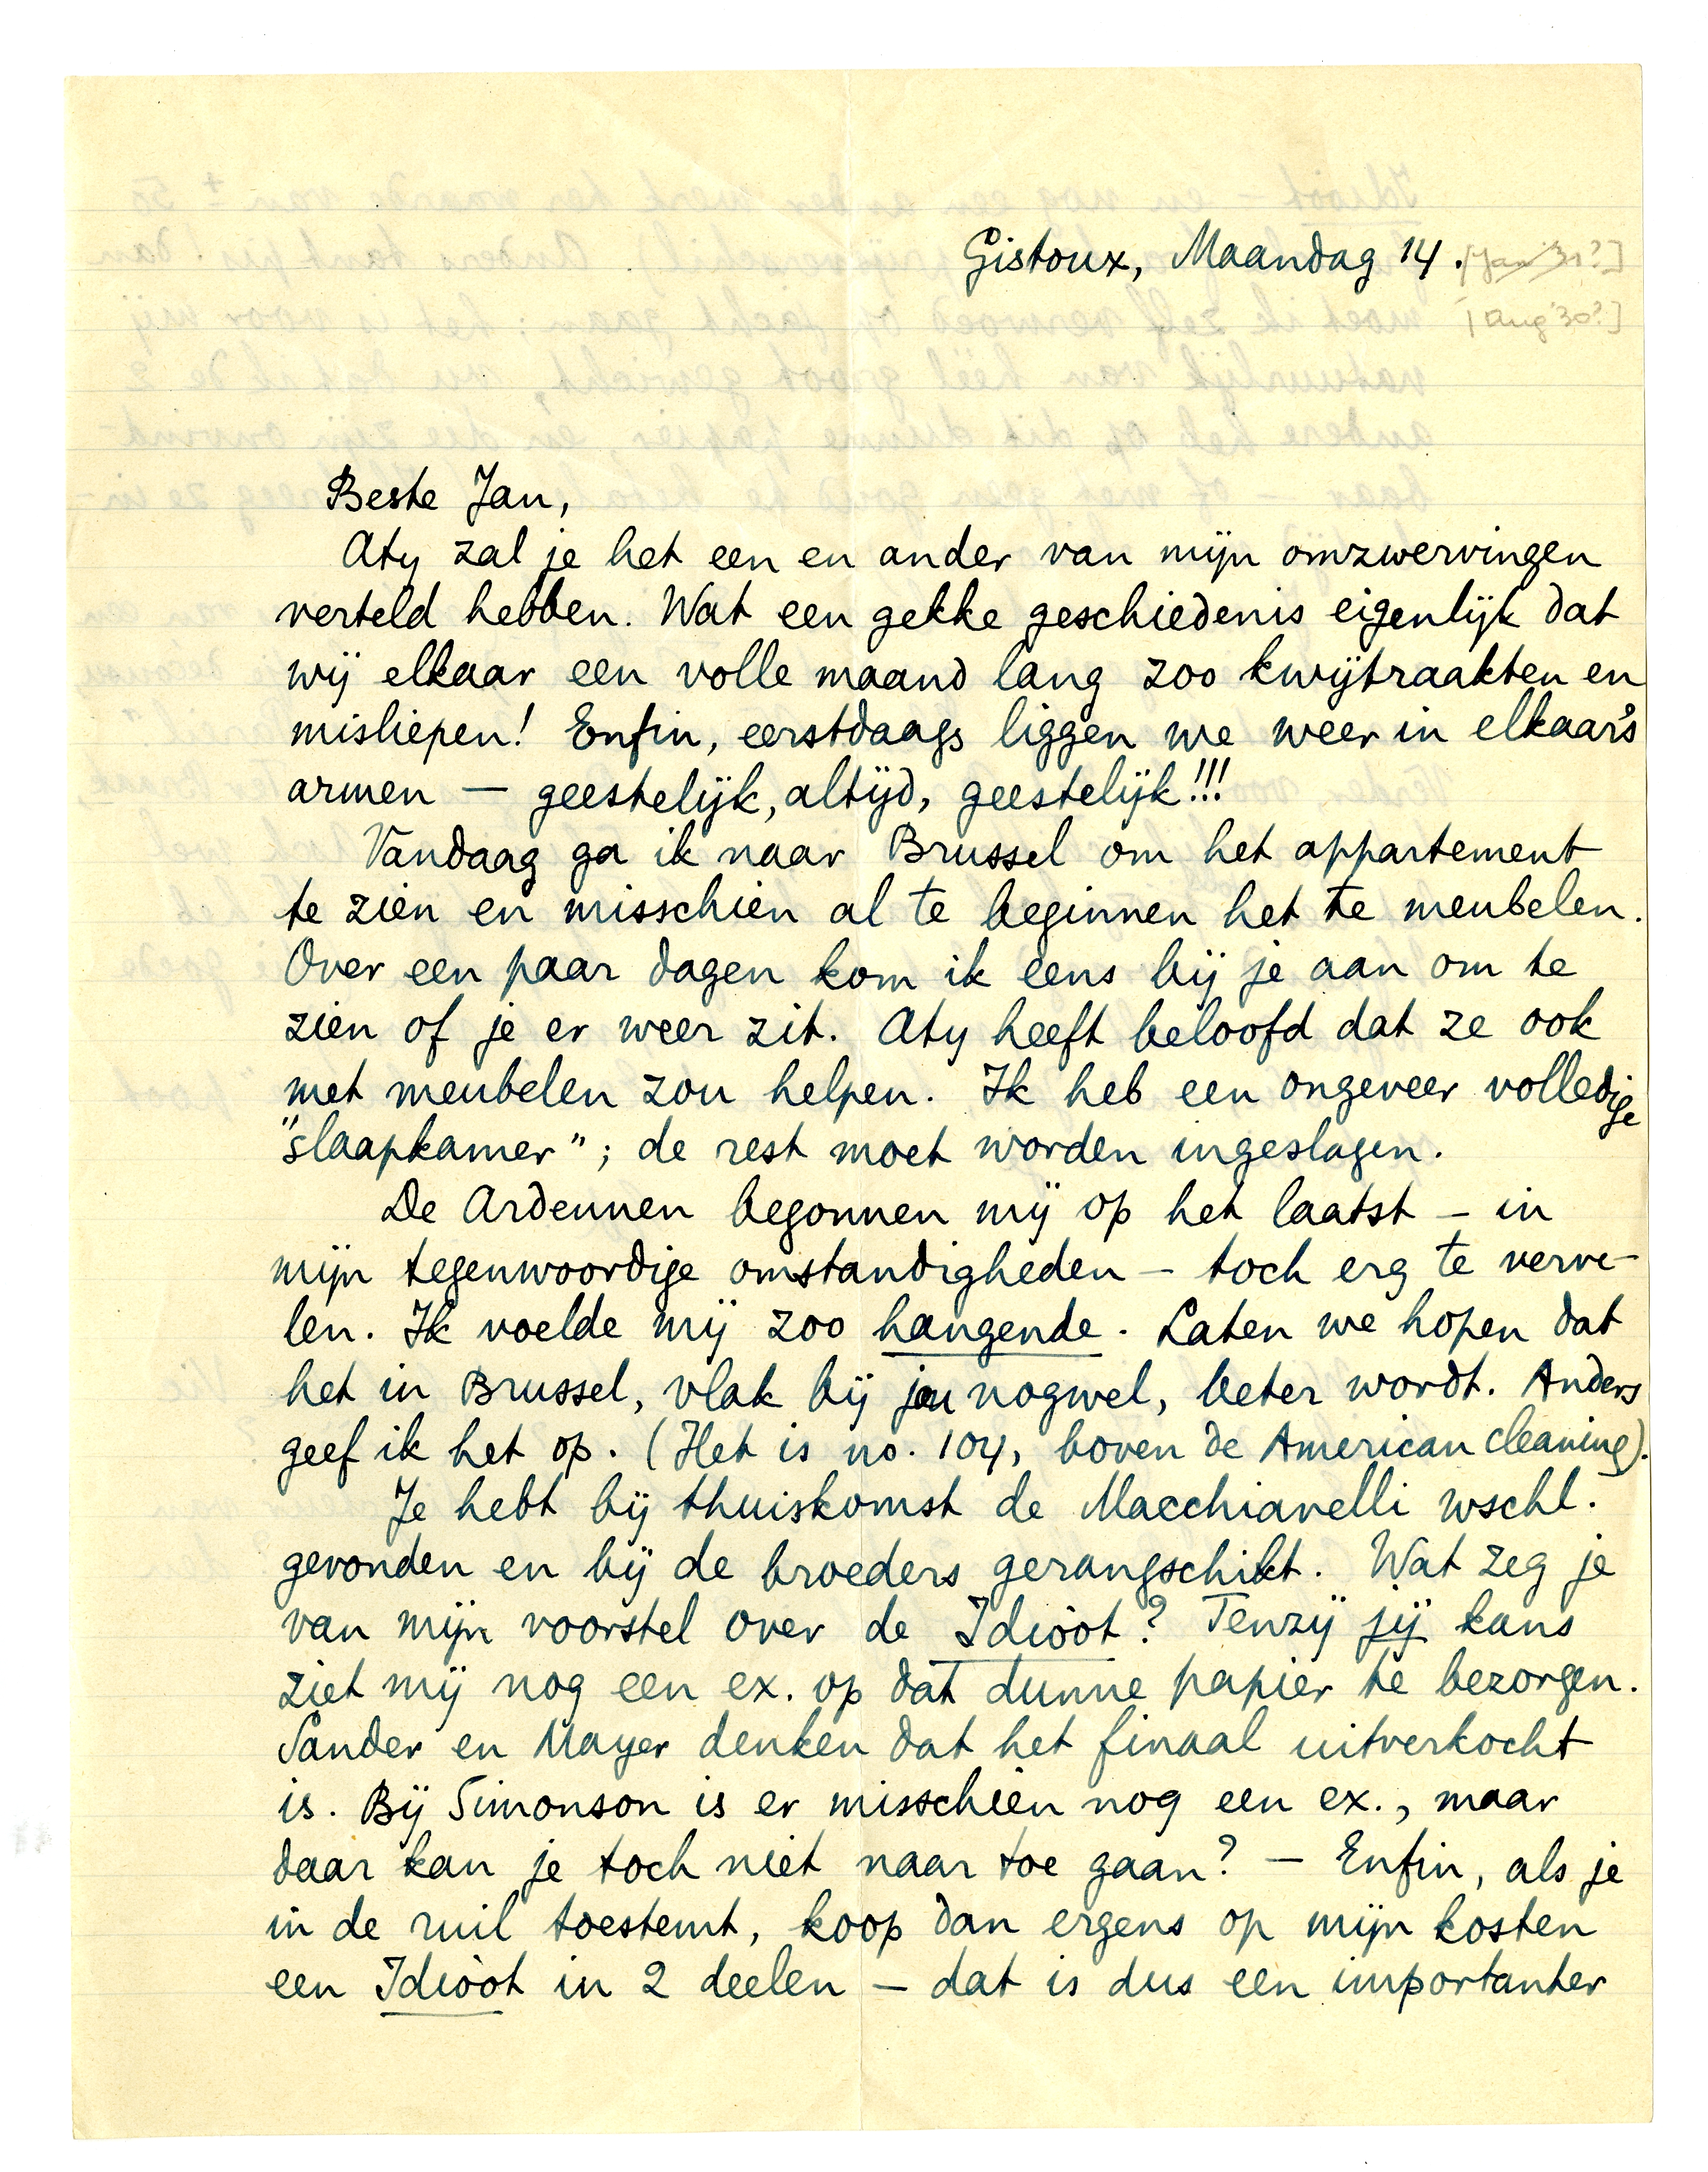 Gistoux, Maandag 14. [Jan '31?]
[Aug '30?]
Beste Jan,
Aty zal je het een en ander van mijn omzwervingen
verteld hebben. Wat een gekke geschiedenis eigenlijk dat
wij elkaar een volle maand lang zoo kwijtraakten en
misliepen! Enfin, eerstdaags liggen we weer in elkaar's
armen — geestelijk, altijd, geestelijk!!!
Vandaag ga ik naar Brussel om het appartement
te zien en misschien al te beginnen het te meubelen.
Over een paar dagen kom ik eens bij je aan om te
zien of je er weer zit. Aty heeft beloofd dat ze ook
met meubelen zou helpen. Ik heb een ongeveer volledige
"slaapkamer"; de rest moet worden ingeslagen.
De Ardennen begonnen mij op het laatst – in
mijn tegenwoordige omstandigheden – toch erg te verve-
len. Ik voelde mij zoo hangende. Laten we hopen dat
het in Brussel, vlak bij jou nogwel, beter wordt. Anders
geef ik het op. (Het is no. 104, boven de American cleaning).
Je hebt bij thuiskomst de Macchiavelli wschl.
gevonden en bij de broeders gerangschikt. Wat zeg je
van mijn voorstel over de Idioot? Tenzij jij kans
ziet mij nog een ex. op dat dunne papier te bezorgen.
Sander en Mayer denken dat het finaal uitverkocht
is. Bij Simonson is er misschien nog een ex., maar
daar kan je toch niet naar toe gaan? — Enfin, als je
in de ruil toestemt, koop dan ergens op mijn kosten
een Idioot in 2 deelen – dat is dus een importanter